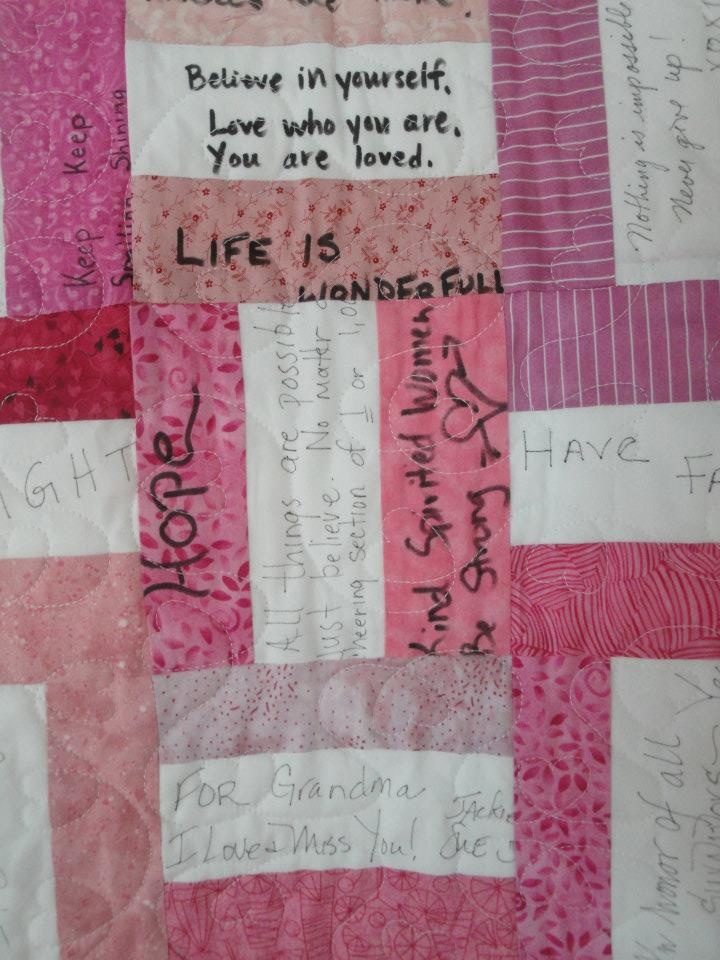 Believe in yourself.
Love who you are.
You are loved.
Keep Keep
Shining
Nothing is impossible
Never give up!
LIFE IS
WONDERFULL
Hope
All things are possible
Just believe. No mater
section of 1 or 1,0
Kind Spirited Women
Be Strong
IGHT
HAVE
FA
FOR Grandma
I Love + Miss You!
Jackie
Sue
In honor of all